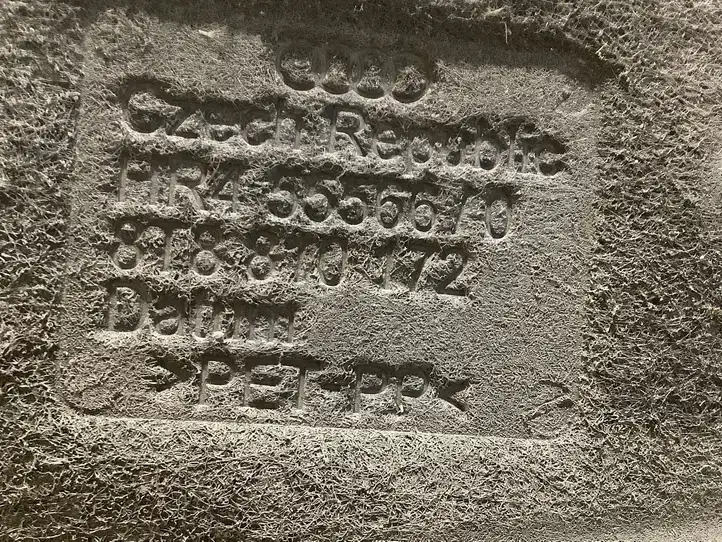 Czech Republic
HR4
8T8 810 172
Datum
>PET-PP<